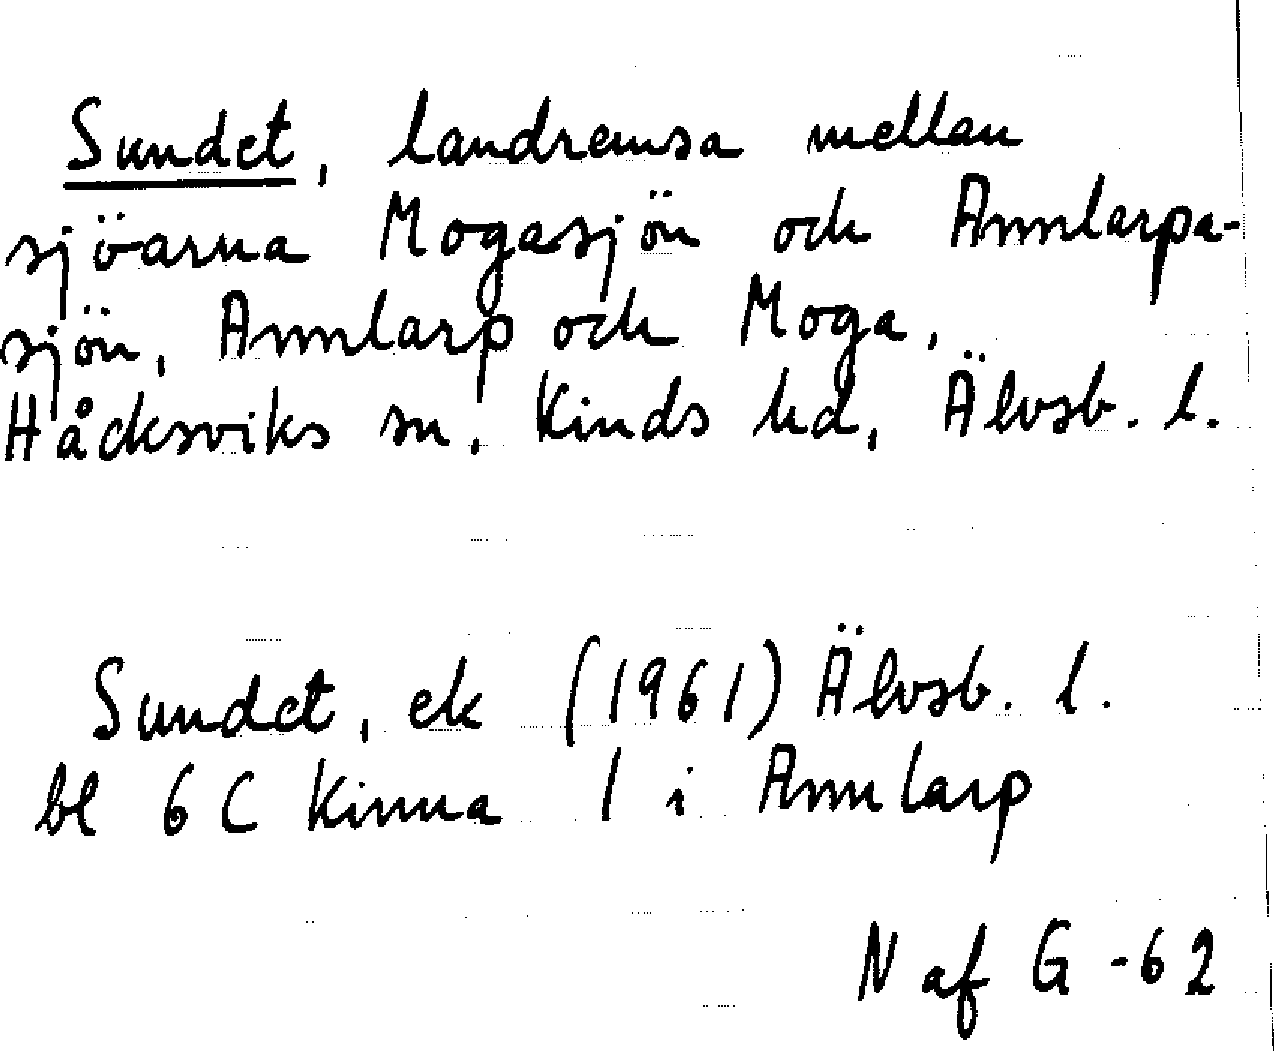 Sundet, landremsa mellan
sjöarna Mogasjön och Annlarpa-
sjön, Annlarp och Moga,
Håcksviks sn, Kinds hd, Älvsb. l.
Sundet, ek (1961) Älvsb. l.
bl 6 C Kinna 1 i Annlarp
N af G -62